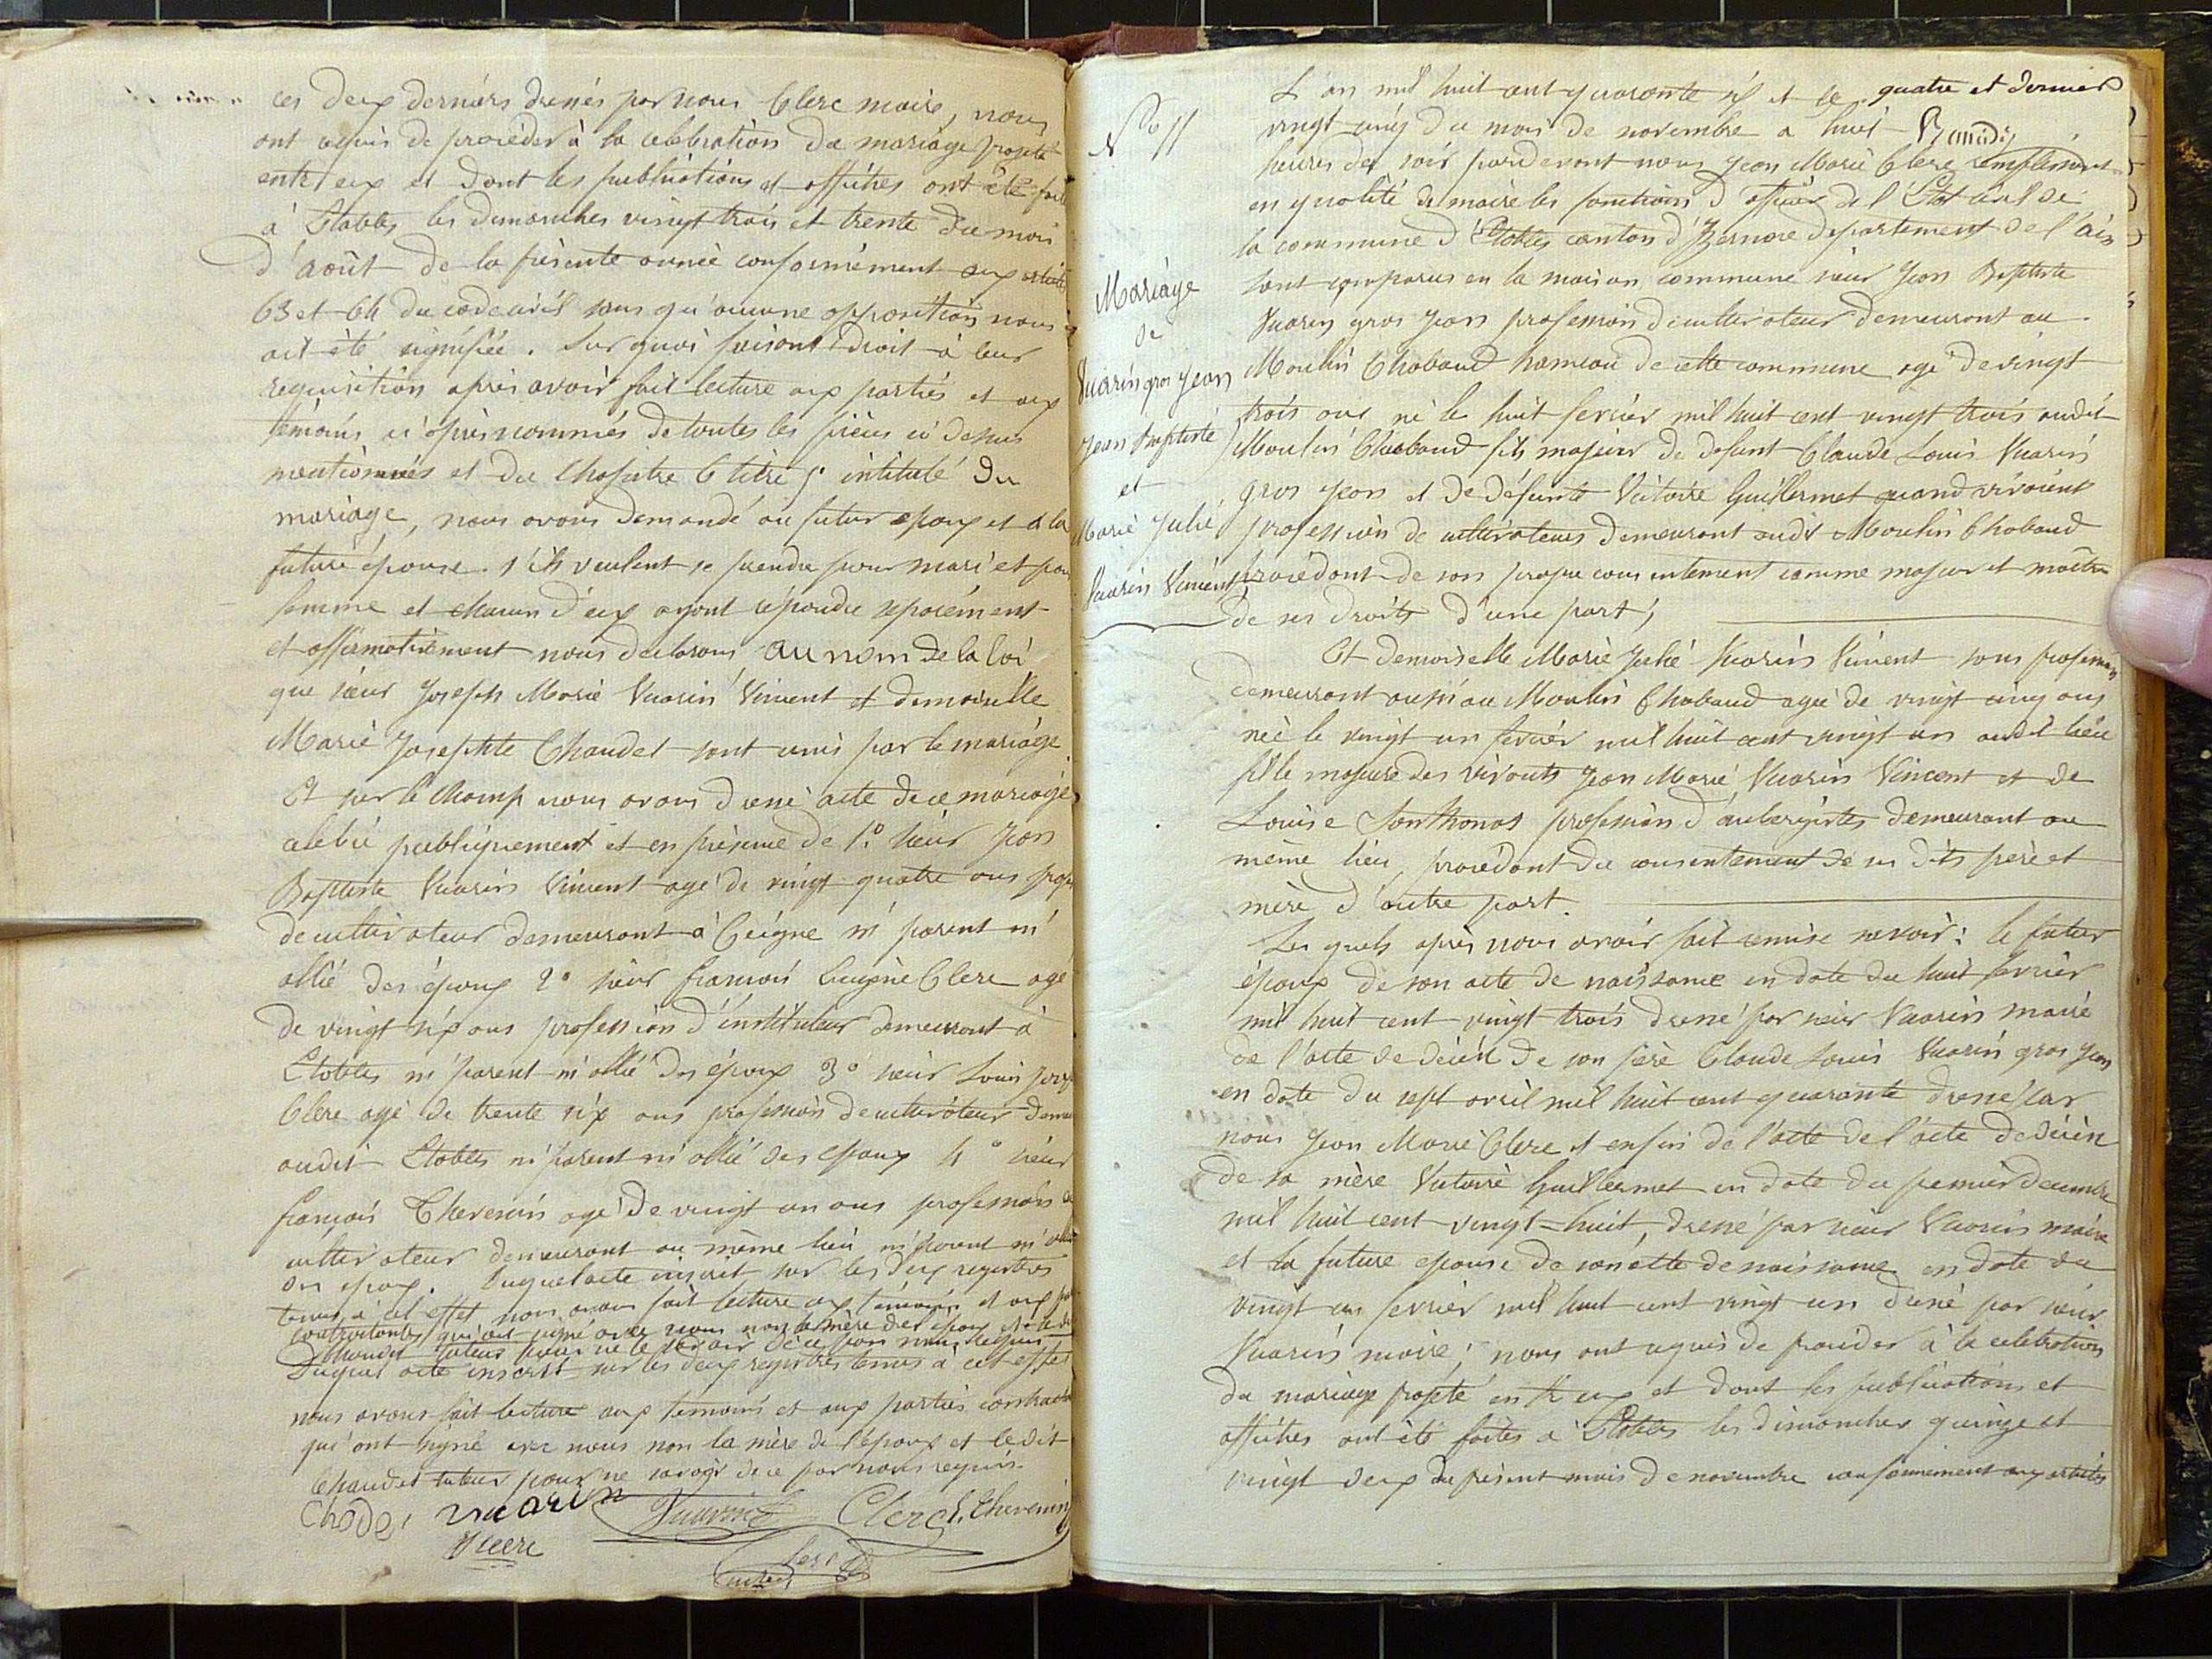 ces deux derniers dressés par nous Clerc maire, nous
ont requis de procéder à la célébration du mariage projeté
entre eux et dont les publications et affiches ont été fait
à Étables les dimanches vingt trois et trente du mois
d'août de la présente année conformément aux articles
63 et 64 du code civil sans qu'aucune opposition nous
ait été signifiée. Sur quoi faisont droit à leur
requisition après avoir fait lecture aux parties et aux
témoins ci après nommés de toutes les pièces ci dessus
mentionnées et du Chapitre 6 titre 5e intitulé du
mariage, nous avons demandé au futur epoux et à la
future épouse s'ils veulent se prendre pour mari et pour
femme et chacun d'eux ayant répondu séparément
et affirmativement nous déclarons au nom de la loi
que sieur Joseph Marie Vuarin Vincent et demoiselle
Marie Josephte Chaudet sont unis par le mariage.
Et sur le champ nous avons dressé acte de ce mariage
célébré publiquement et en présence de 1° sieur Jean
Baptiste Vuarin Vincent agé de vingt quatre ans prof
de cultivateur demeurant à Ceigne ni parent ni
allié des époux 2° sieur françois Eugène Clerc agé
de vingt six ans profession d'instituteur demeurant à
Etables ni parent ni allié des époux 3° sieur Louis
Clerc agé de trente six ans profession de cultivateur dem
audit Etables ni parent ni allié des epoux 4° sieur
françois Thevenin agé de vingt un ans profession de
cultivateur demeurant au même lieu ni parent ni allié
des epoux. Duquel acte inscrit sur les deux registres
tenus à cet effet nous avons fait lecture aux témoins et aux
contractantes qui ont signé avec nous non la mère des epoux et le dit
Chaudet tuteur pour ne le savoir de ce par nous requis
Duquel acte inscrit sur les deux registres tenus à cet effet
nous avons fait lecture aux temoins et aux parties contract
qui ont signé avec nous non la mère de l'époux et le dit
Chaudet tuteur pour ne savoir de ce par nous requis.
Chodet Vuarin Vuarin Clerc f. Thevenin
Clerc
N° 11
Mariage
de
Vuarin gros Jean
Jean Baptiste
et
Marie Julie
Vuarin Vincent
L'an mil huit cent quarante six et le quatre et dernier
vingt cinq du mois de novembre a huit
heures du soir pardevant nous Jean Marie Clerc remplissant
en qualité de maire les fonctions d'officier de l'Etat civil de
la commune d'Etables canton d'Izernore departement de l'ain
sont comparus en la maison commune sieur Jean Baptiste
Vuarin gros Jean profession de cultivateur demeurant au
Moulin Chabaud hameau de cette commune agé de vingt
trois ans né le huit fevrier mil huit cent vingt trois audit
Moulin Chabaud fils majeur de defunt Claude Louis Vuarin
gros Jean et de défunte Victoire Guillermet quand vivoient
profession de cultivateurs demeurant audit Moulin Chabaud
procédant de son propre consentement comme majeur et maître
de ses droits d'une part;
Et demoiselle Marie Julie Vuarin Vincent sans profession
demeurant aussi au Moulin Chabaud agée de vingt cinq ans
née le vingt un fevrier mil huit cent vingt un audit lieu
fille majeure des vivants Jean Marie Vuarin Vincent et de
Louise Sonthonas profession d'aubergistes demeurant au
même lieu, procédant du consentement de ses dits père et
mère d'autre part.
Les quels après nous avoir fait remise savoir: le futur
époux de son acte de naissance en date du huit fevrier
mil huit cent vingt trois dressé par sieur Vuarin maire
de l'acte de décès de son père Claude Louis Vuarin gros Jean
en date du sept avril mil huit cent quarante dressé par
nous Jean Marie Clerc et enfin de l'acte de l'acte de décès
de sa mère Victoire Guillermet en date du premier decembre
mil huit cent vingt-huit, dressé par sieur Vuarin maire
et la future epouse de son acte de naissance en date du
vingt un fevrier mil huit cent vingt un dressé par sieur
Vuarin maire; nous ont requis de procéder à la celebration
du mariage projeté entre eux et dont les publications et
affiches ont été faites à Etables les dimanches quinze et
vingt deux du présent mois de novembre conformément aux articles